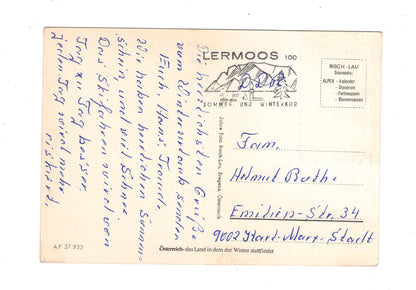 Die herzlichsten Grüße
vom Winterurlaub senden
Euch, Hans, Traudl.
Wir haben herrlichen Sonnen-
schein, und viel Schnee.
Das Skifahren wird von
Tag zu Tag besser.
Jeden Tag wird mehr
riskiert.
LERMOOS 100
SOMMER- UND WINTERKUR
DDR
BISCH-LAU
Souvenirs:
ALPEN - Kalender
- Diaserien
- Farbmappen
- Blumenserien
Fam.
Helmut Bathe
Emilien-Str. 34
9002 Karl-Marx-Stadt
Österreich - das Land in dem der Winter stattfindet
AF 27.933